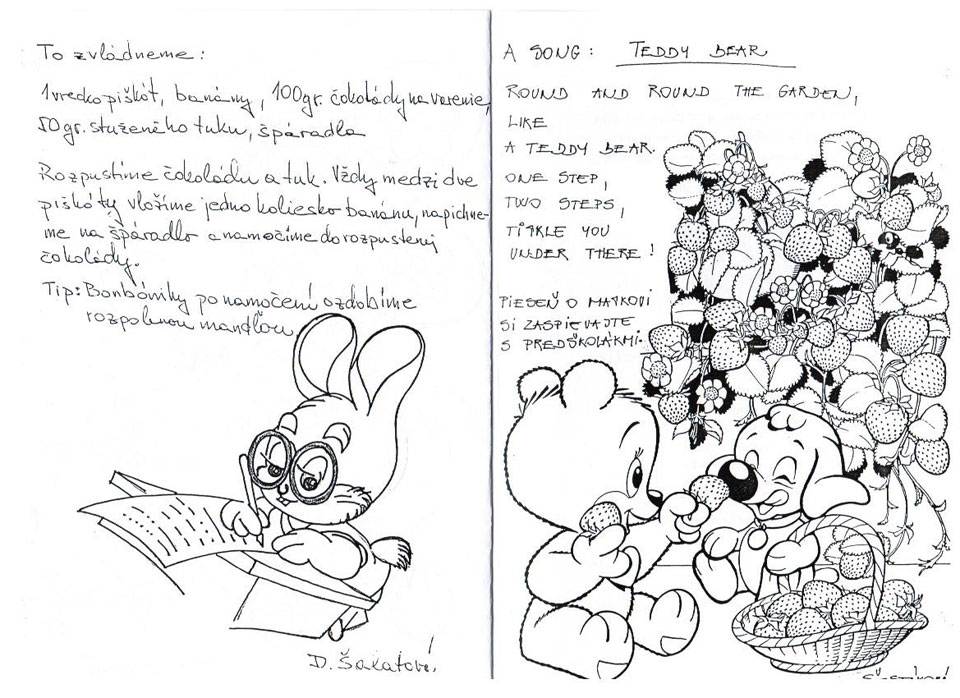 To zvládneme:
1 vrecko piškót, banány, 100gr. čokolády na varenie,
50 gr. stuženého tuku, špáradla
Rozpustíme čokoládu a tuk. Vždy medzi dve
piškóty vložíme jedno koliesko banánu, napichne-
me na špáradlo a namočíme do rozpustenj
čokolády.
Tip: Bonbóniky po namočení ozdobíme
rozpolenou mandľou
D. Šalatová
A SONG: TEDDY BEAR
ROUND AND ROUND THE GARDEN,
LIKE
A TEDDY BEAR.
ONE STEP,
TWO STEPS,
TICKLE YOU
UNDER THERE!
PIESEŇ O MACKOVI
SI ZASPIEVAJTE
S PREDŠKOLÁKMI.